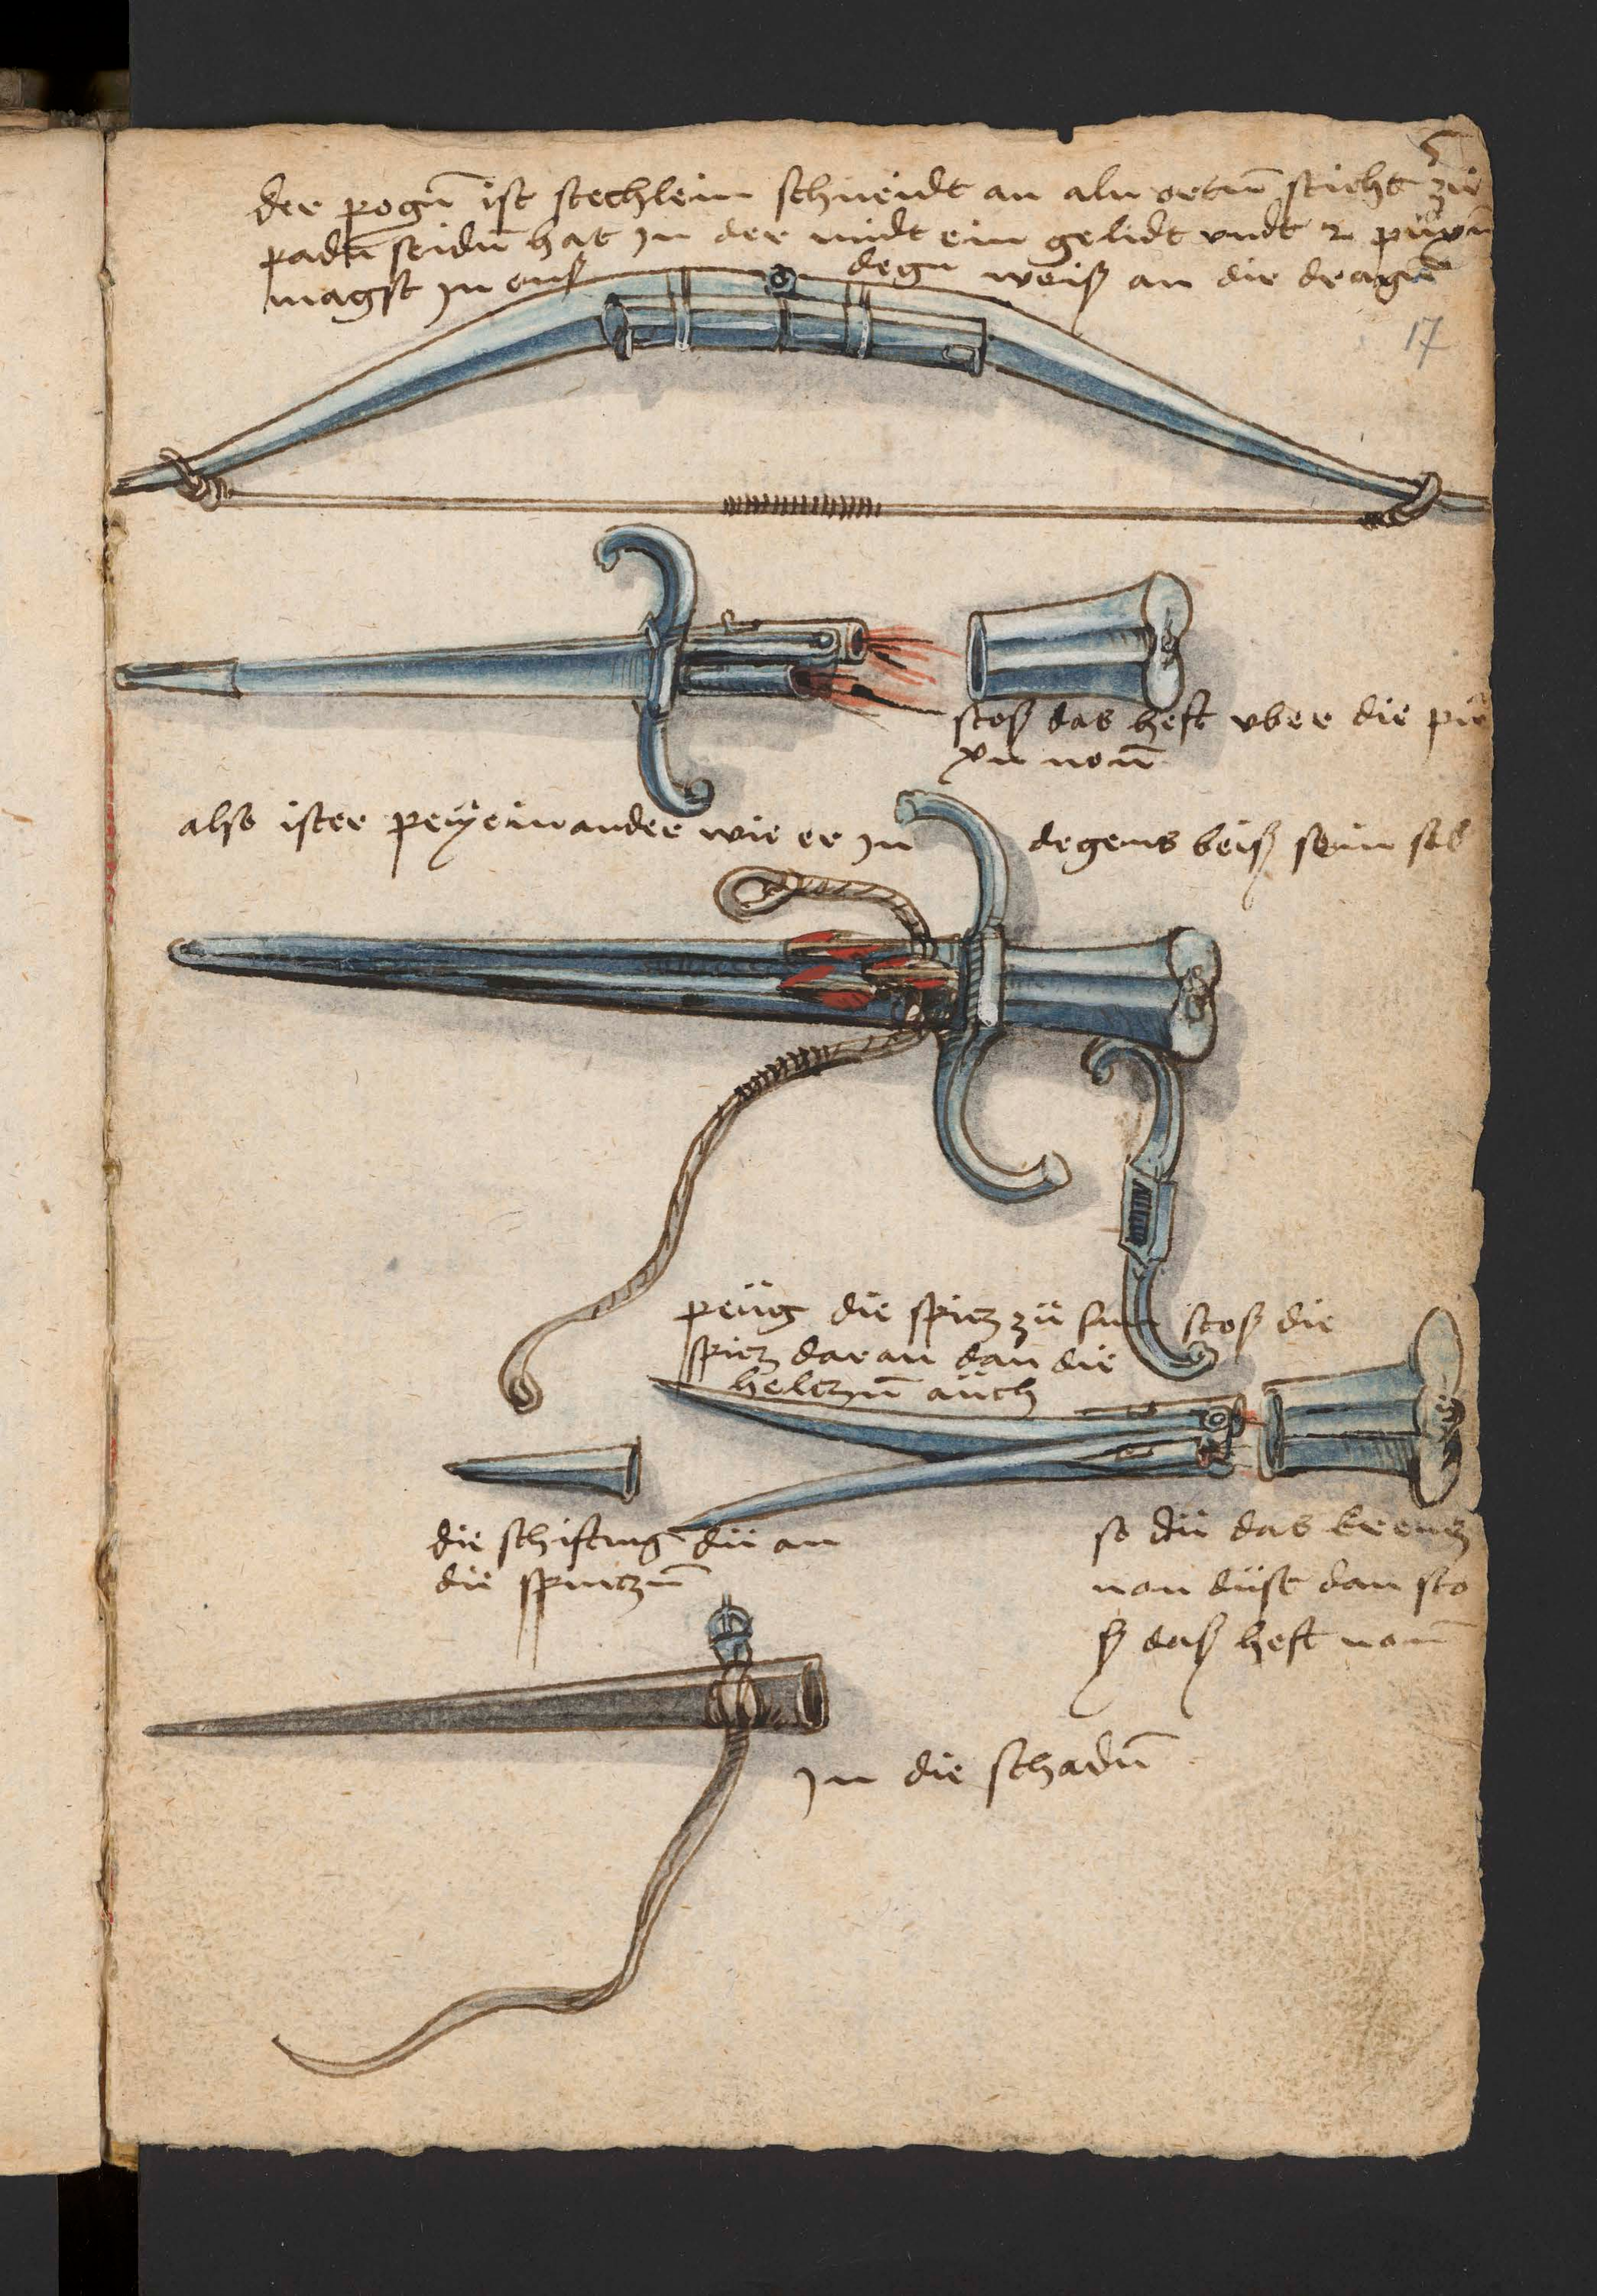 der pogn̄ ist stechlein schneidt an aln ortn̄ sticht zu
padn̄ seidn̄ hat Jn der midt ein gelidt vndt 2 püxn̄
magst Jn auß degn weiß an die dragn̄
17
stoß das heft vber die pü
xn non̄
also ister peÿeinander wie er Jn degens beiß sein sol
peüg die spicz zu sam stoß die
spicz daran dan die
helczn̄ auch
die schiftung dü an
die spiczn̄
so dü das kreucz
non düst dan sto
ß daß heft non̄
Jn die schadn̄